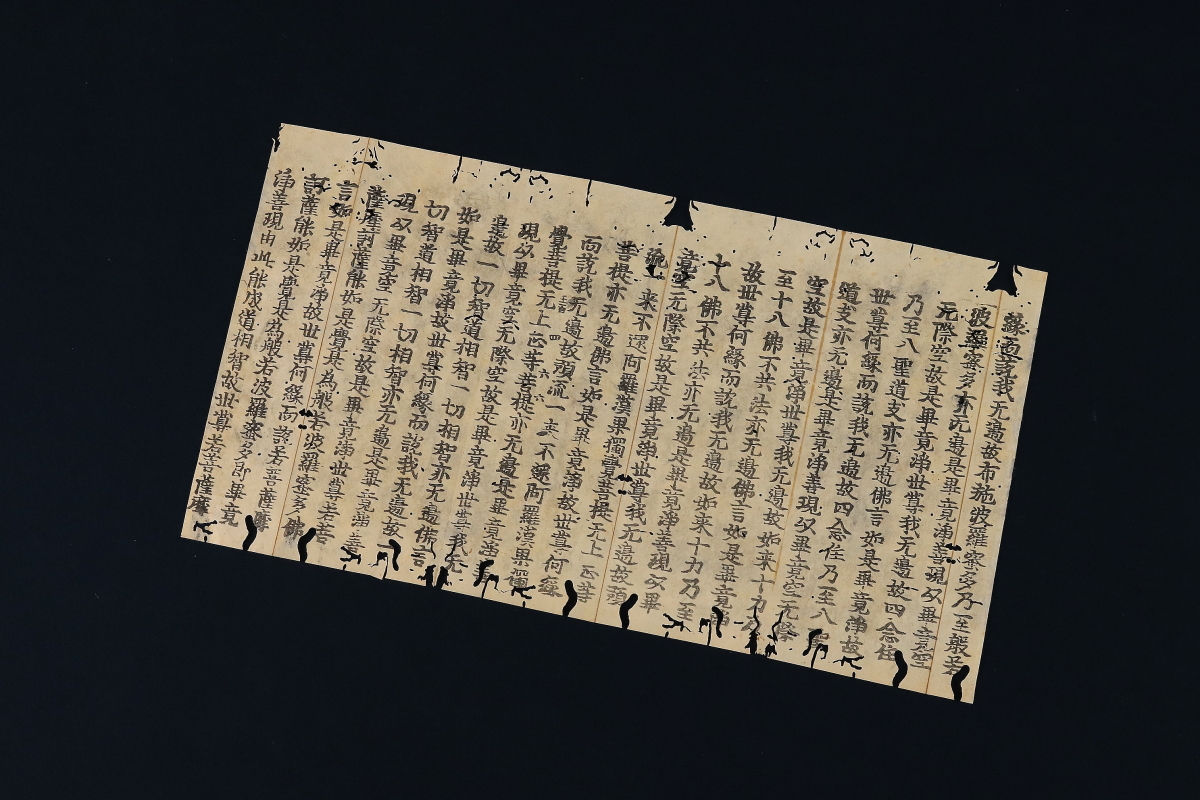 緣而說我无邊故布施波羅蜜多乃至般若
波羅蜜多亦无邊是畢竟淨善現以畢竟空
无際空故是畢竟淨世尊我无邊故四念住
乃至八聖道支亦无邊佛言如是畢竟淨故
世尊何緣而說我无邊故四念住乃至八聖
道支亦无邊是畢竟淨善現以畢竟空无際
空故是畢竟淨世尊我无邊故如来十力乃
至十八佛不共法亦无邊佛言如是畢竟淨
故世尊何緣而說我无邊故如来十力乃至
十八佛不共法亦无邊是畢竟淨善現以畢
竟空无際空故是畢竟淨世尊我无邊故預
流一来不還阿羅漢果獨覺菩提无上正等
菩提亦无邊佛言如是畢竟淨故世尊何緣
而說我无邊故預流一来不還阿羅漢果獨
覺菩提无上正等菩提亦无邊是畢竟淨善
現以畢竟空无際空故是畢竟淨世尊我无
邊故一切智道相智一切相智亦无邊佛言
如是畢竟淨故世尊何緣而說我无邊故一
切智道相智一切相智亦无邊是畢竟淨善
現以畢竟空无際空故是畢竟淨世尊若菩
薩摩訶薩能如是覺是為般若波羅蜜多佛
言如是畢竟淨故世尊何緣而說若菩薩摩
訶薩能如是覺是為般若波羅蜜多即畢竟
淨善現由此能成道相智故世尊若菩薩摩